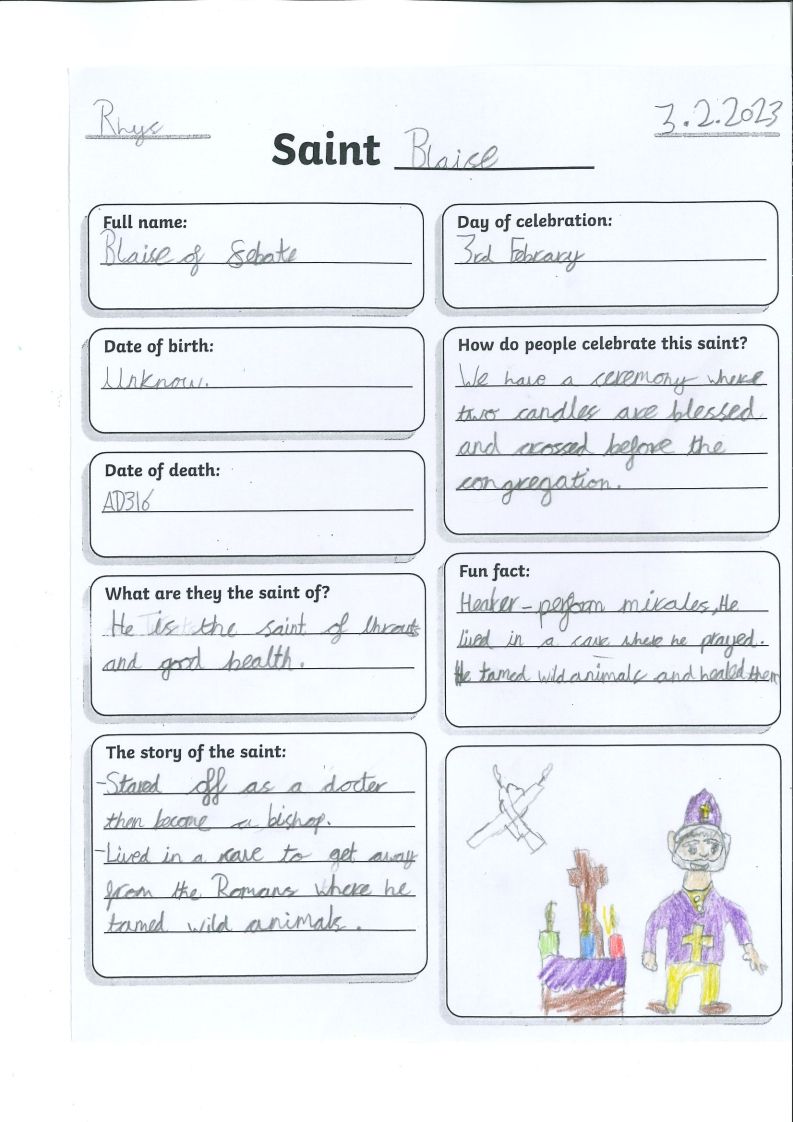 Rhys
3.2.2023
Saint Blaise
Full name:
Blaise of Sebate
Date of birth:
Unknow.
Date of death:
AD316
What are they the saint of?
He is the saint of throats
and good health.
The story of the saint:
-Stared off as a docter
then become a bishop.
-Lived in a cave to get away
from the Romans where he
tamed wild animals.
Day of celebration:
3rd Febrary
How do people celebrate this saint?
We have a ceremony where
two candles are blessed
and crossed before the
congregation.
Fun fact:
Healer - perform mirales, He
lived in a cave where he prayed.
He tamed wild animals and healed them